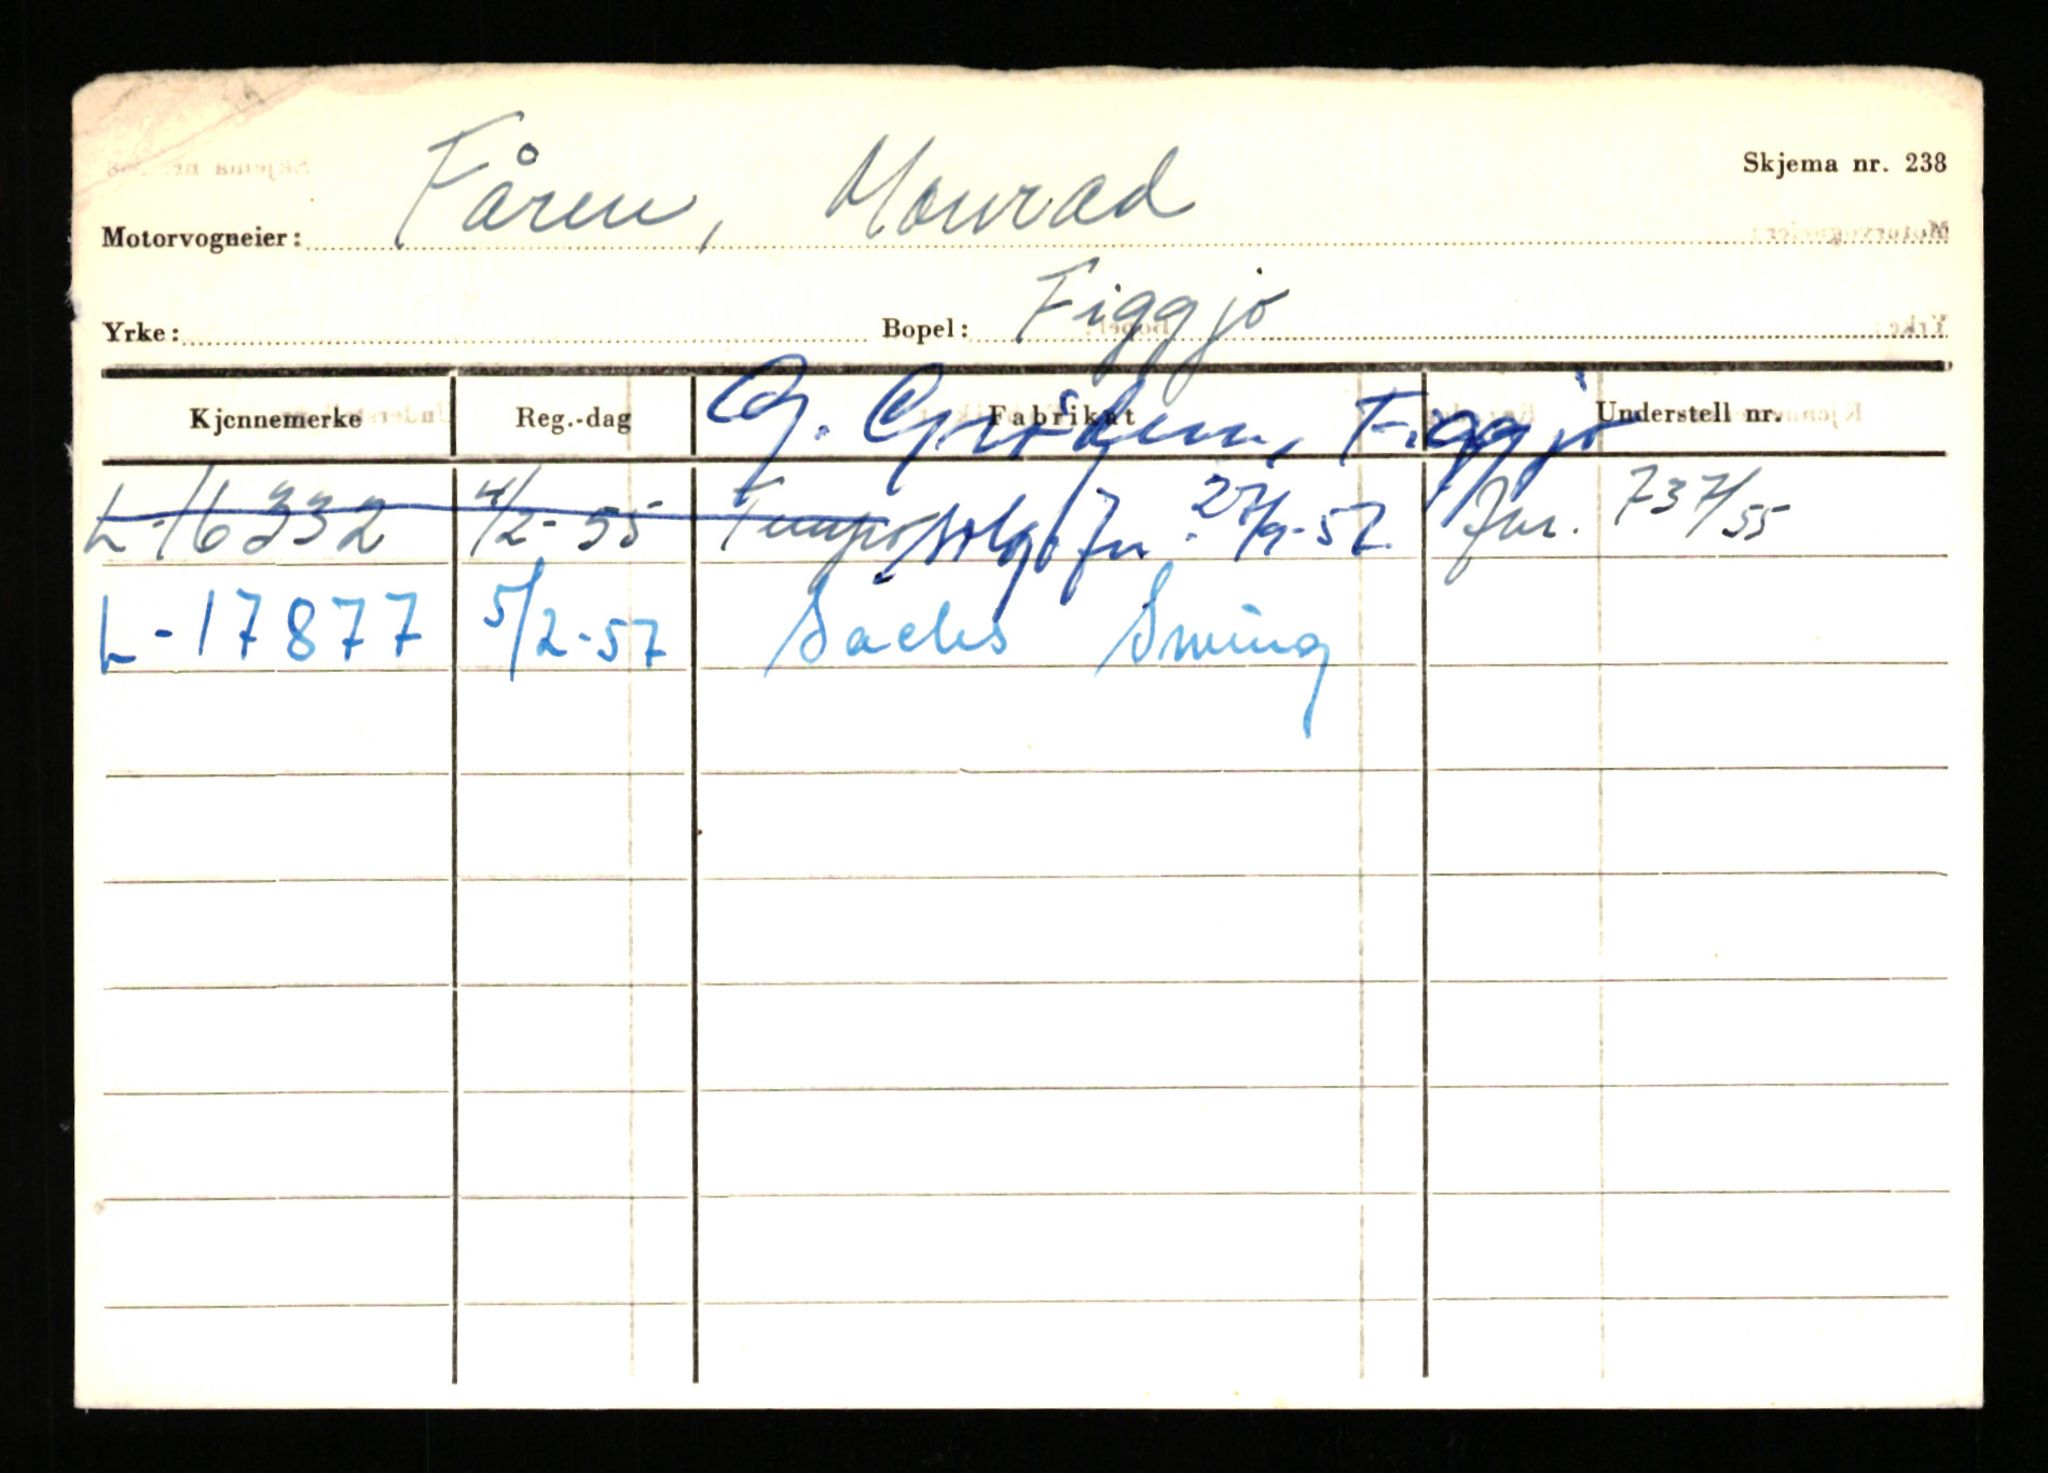 Skjema nr. 238
Motorvogneier: Fåren, Monrad
Yrke: Bopel: Figgjo
Kjennemerke Reg.-dag Fabrikat Understell nr.
G. Figgjo
L-16332 4/2-55 Tempo solgt 27/9-57 Jnr. 737/55
L-17877 5/2-57 Sachs Swing